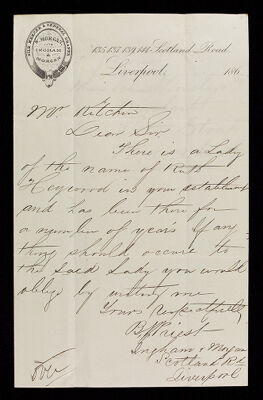 E. MORGAN
LATE
INGHAM
&
MORGAN
135, 137, 139 & 141 Scotland Road,
Liverpool, 186
Mr Kitchin
Dear Sir
There is a Lady
of the name of Ruth
Heywood in your establishment
and has been there for
a number of years If any
thing should occure to
the said Lady you would
oblige by writing me
Yours Respectfully
B Priest
Ingham & Morgan
Scotland Rd
Liverpool